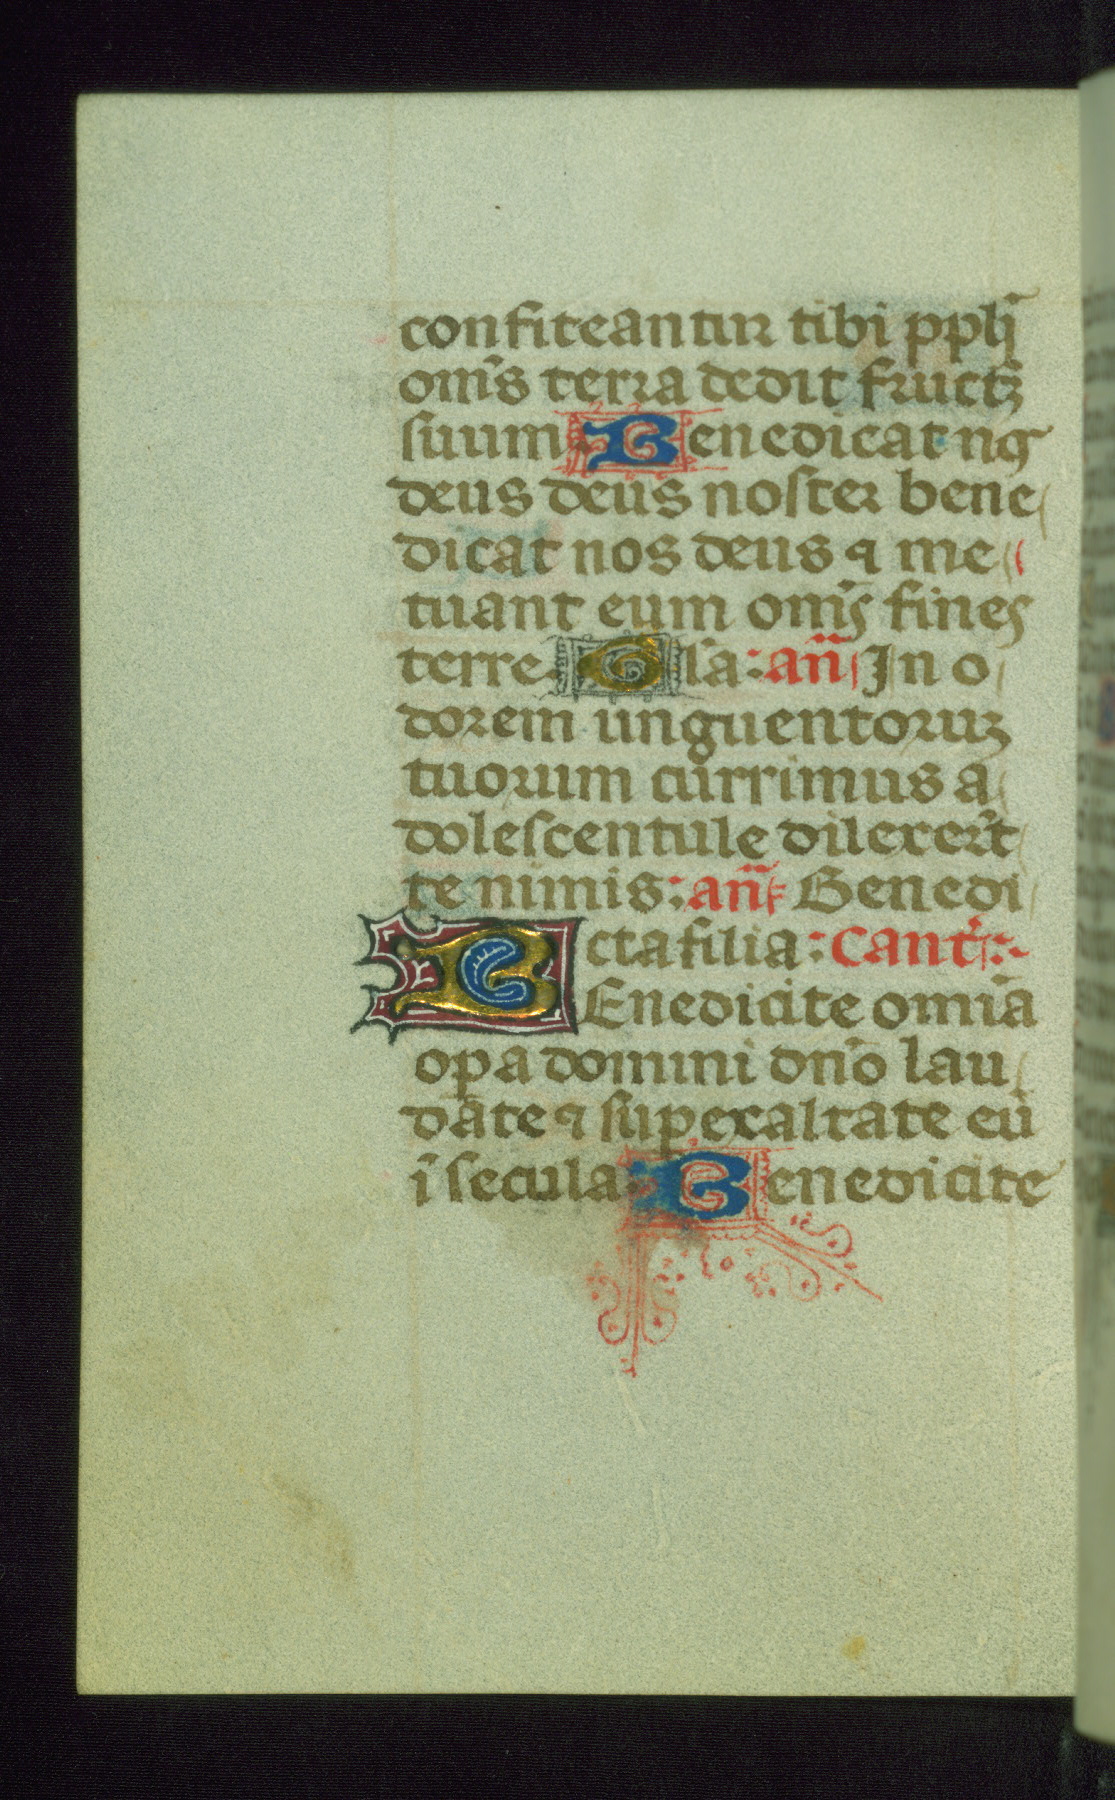 confiteantur tibi ppłi
om̄s terra dedit fructꝫ
suum Benedicat nꝯ
deus deus noster bene
dicat nos deus ⁊ me
tuant eum om̄s fines
terre Gl̄a : an̄ In o
dorem unguentoruꝫ
tuorum currimus a
dolescentule dilexer̄t
te nimis : an̄ Benedi
cta filia : cant̄
BEnedicite omīa
opa domini dn̄o lau
date ⁊ suꝑexaltate eū
ī secula Benedicite